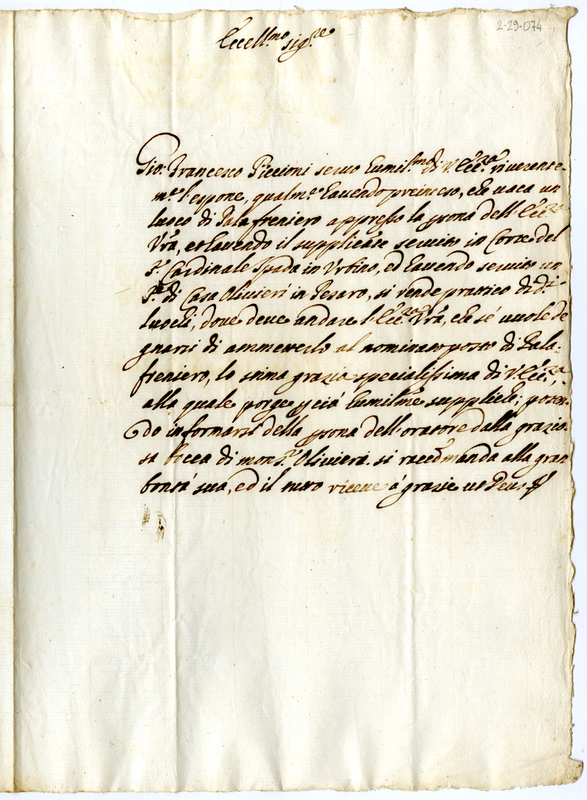 2-29-074
Eccell.mo sig.re
Gio: Francesco Piccioni servo humil.mo di V. Ecc.za riverente-
m.te l'espone, qualm.te havendo preinteso, che vaca un
luoco di Palafreniero appresso la p̄sona dell'Ecc.za
Vrā, et havendo il supplicāte servito in Corte del
S.r Cardinale Spada in Urbino, ed havendo servito un
S.re di Casa Olivieri in Pesaro, si rende prattico di d.ti
luochi, dove deve andare l'Ecc.za Vrā, che se vuole de
gnarsi di ammetterlo al nominato posto di Pala-
freniero, lo stima grazia specialissima di V. Ecc.za,
alla quale porge p ciò humilm̄e suppliche; poten-
do informarsi della p̄sona dell'oratore dalla grazio-
sa bocca di mons.r Olivieri. si raccōmanda alla gran
bontà sua, ed il tutto riceve à grazie ut Deus